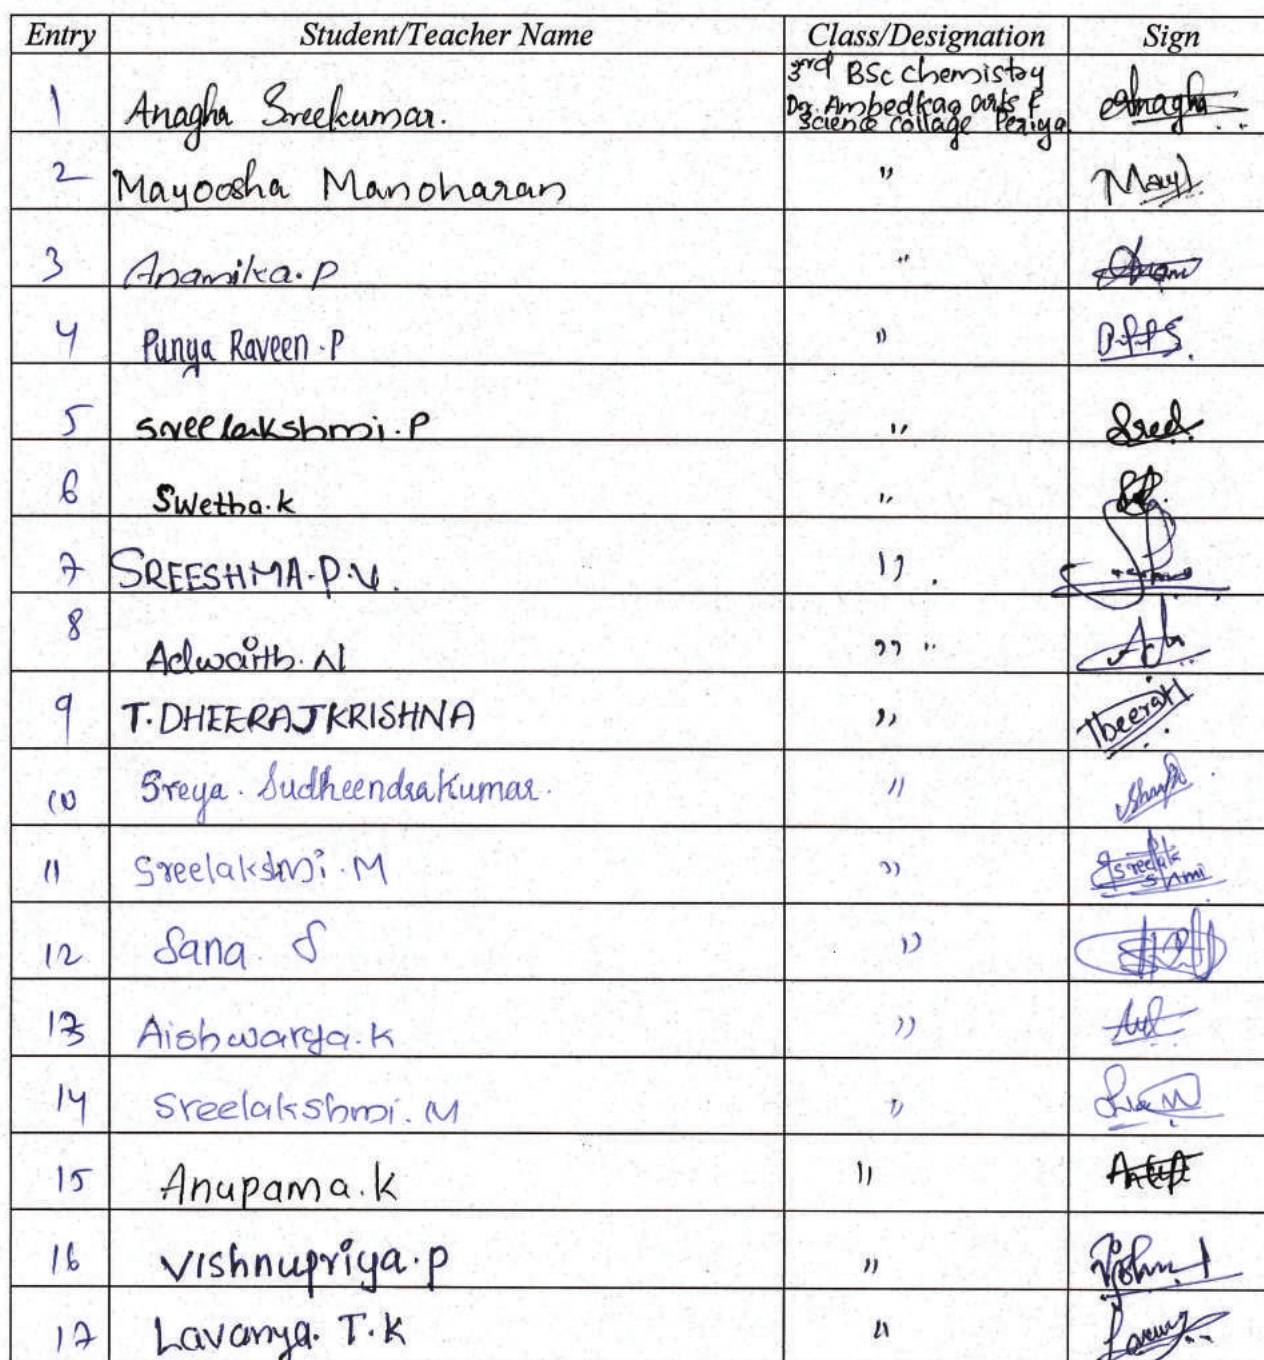 Entry Student/Teacher Name Class/Designation Sign
1 Anagha Sreekumar. 3rd BSc chemistry
Dr. Ambedkar arts &
Science collage Periya Anagha
2 Mayoosha Manoharan "
3 Anamika. P "
4 Punya Raveen. P "
5 sreelakshmi. P " Sree
6 Swetha. K "
7 SREESHMA. P. V. " .
8 Adwaith. N " "
9 T. DHEERAJ KRISHNA " Dheeraj
10 Sreya. Sudheendrakumar. "
11 Sreelakshmi. M " Sreelak
shmi
12 Sana. S "
13 Aishwarya. K "
14 Sreelakshmi. M "
15 Anupama. K "
16 Vishnupriya. P "
17 Lavanya. T. K "